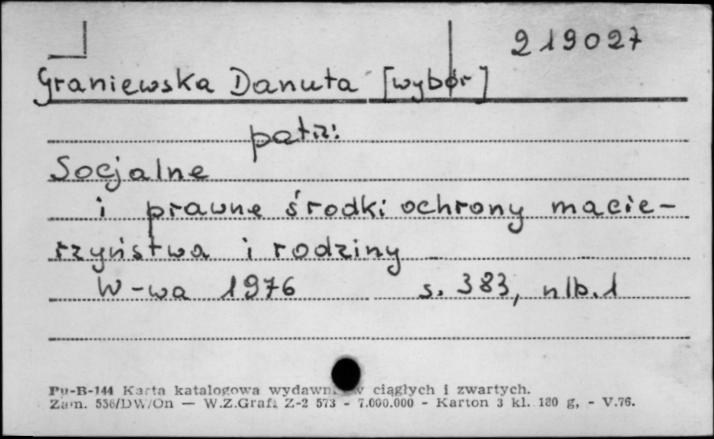 219027
Graniewska Danuta [wybór]
patrz:
Socjalne
i prawne środki ochrony macie-
rzyństwa i rodziny
W-wa 1976 s. 383, nlb. 1
Pu-B-144 Karta katalogowa ciągłych i zwartych.
Zam. 556/DW/On — W.Z.Graf. Z-2 573 - 7.000.000 - Karton 3 kl. 180 g, - V.76.